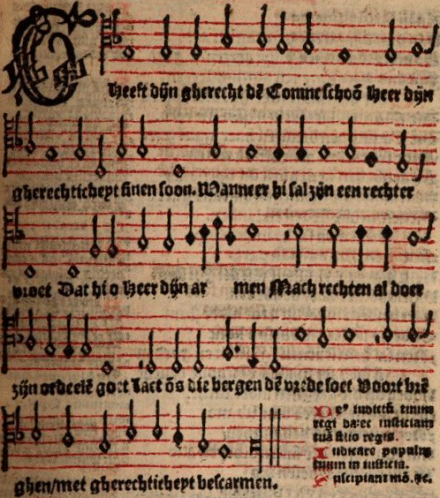 Gheeft dijn gherecht dē Coninc schoō Heer dijn
gherechticheyt sinen soon. Wanneer hi sal zijn een rechter
vroet Dat hi o Heer dijn ar men Mach rechten al door
zijn ordeelē goet Laet ōs die bergen dē vrede soet Voort brē
ghen/met gherechticheyt bescarmen.
regi da: et iusticiam
tuā filio regis.
Iudicare populum
tuum in iusticia.
Suscipiant mō. &c.